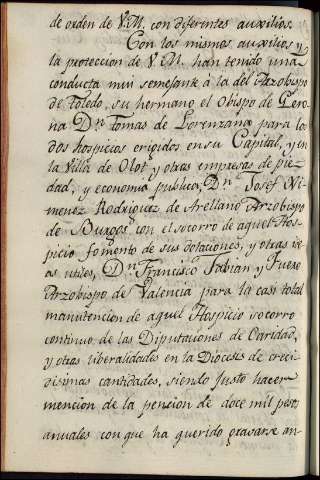 de orden de V.M. con diferentes auxilios.
Con los mismos auxilios y
la proteccion de V.M. han tenido una
conducta mui semejante á la del Arzobispo
de Toledo, su hermano el Obispo de Gero-
na Dn. Tomas de Lorenzana para los
dos hospicios erigidos en su Capital, y en
la Villa de Olot, y otras empresas de pie-
dad, y economia publica, Dn. Josef Xi-
menez Rodriguez de Arellano Arzobispo
de Burgos con el socorro de aquel Hos-
picio, fomento de sus dotaciones, y otras
utiles, Dn. Francisco Fabian y Fuero
Arzobispo de Valencia para la casi total
manutencion de aquel Hospicio socorro
continuo de las Diputaciones de Caridad,
y otras liberalidades en la Diocesis de creci-
disimas cantidades, siendo justo hacer
mencion de la pencion de doce mil pesos
anuales con que ha querido gravarse an-